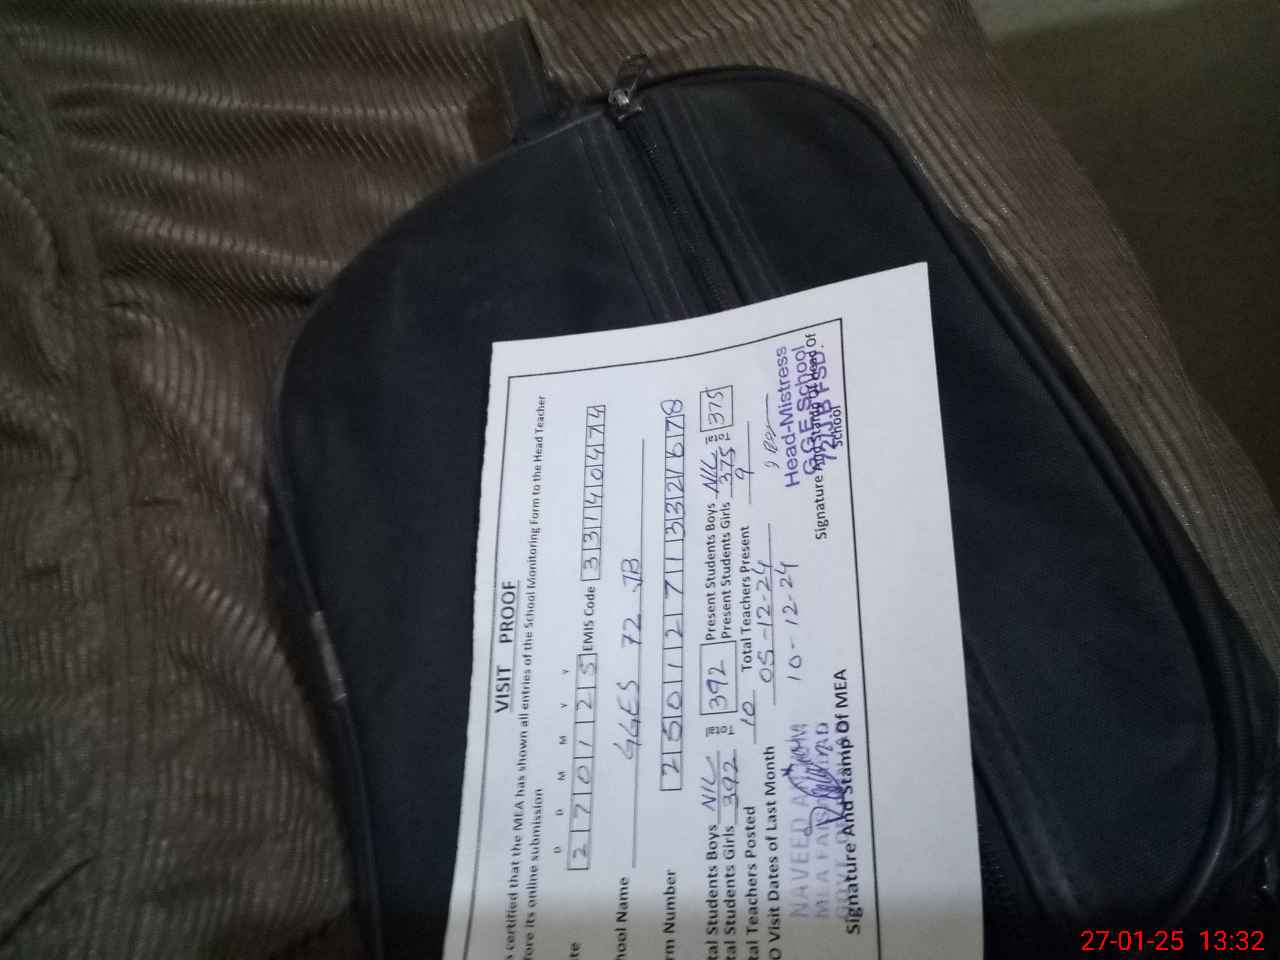 VISIT PROOF
certified that the MEA has shown all entries of the School Monitoring Form to the Head Teacher
fore its online submission
D D M M Y Y
te 270125 EMIS Code 33140474
hool Name GGES 72 JB
rm Number 2501271332678
tal Students Boys NIL 392 Present Students Boys NIL 375
tal Students Girls 392 Present Students Girls 375
tal Teachers Posted 10 Total Teachers Present 9
O Visit Dates of Last Month 05-12-24
10-12-24
NAVEED
MEA
Signature And Stamp Of MEA
Head-Mistress
G.G.E School
72 J.B FSD.
Signature And Stamp Of Head Of
School
27-01-25 13:32